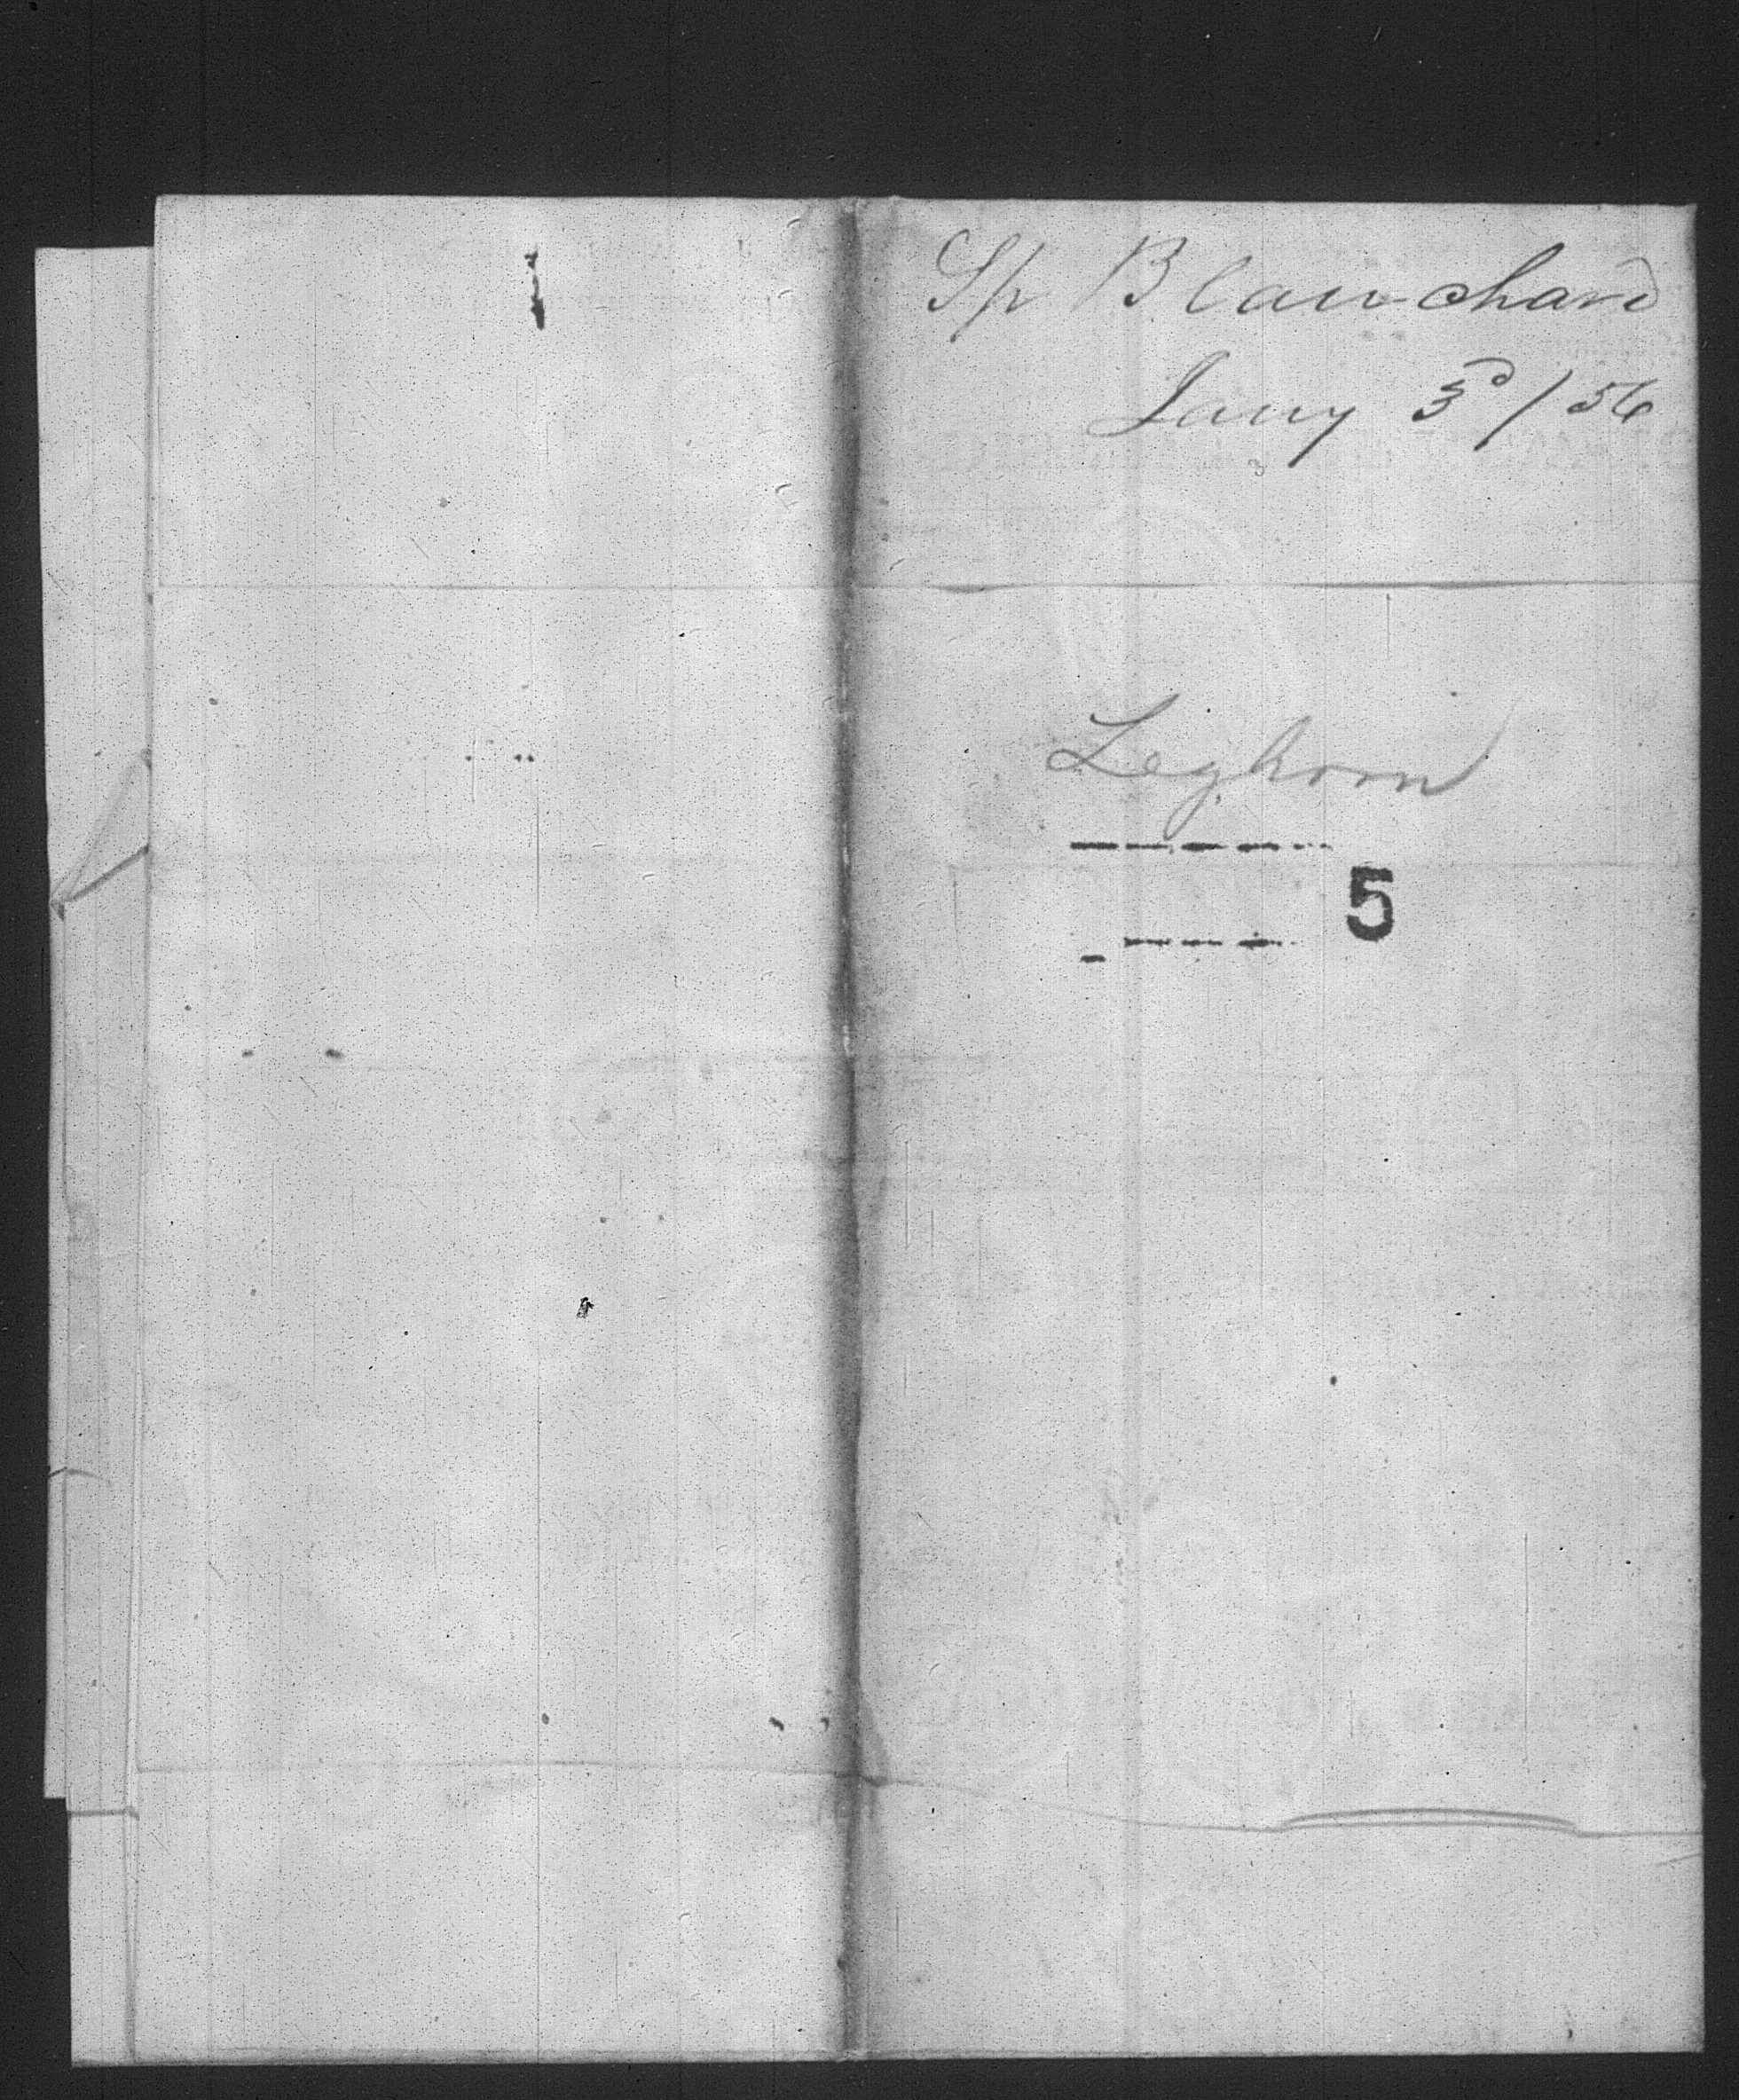 Sp Blanchard
Jany 3d / 56
Leghorn
5